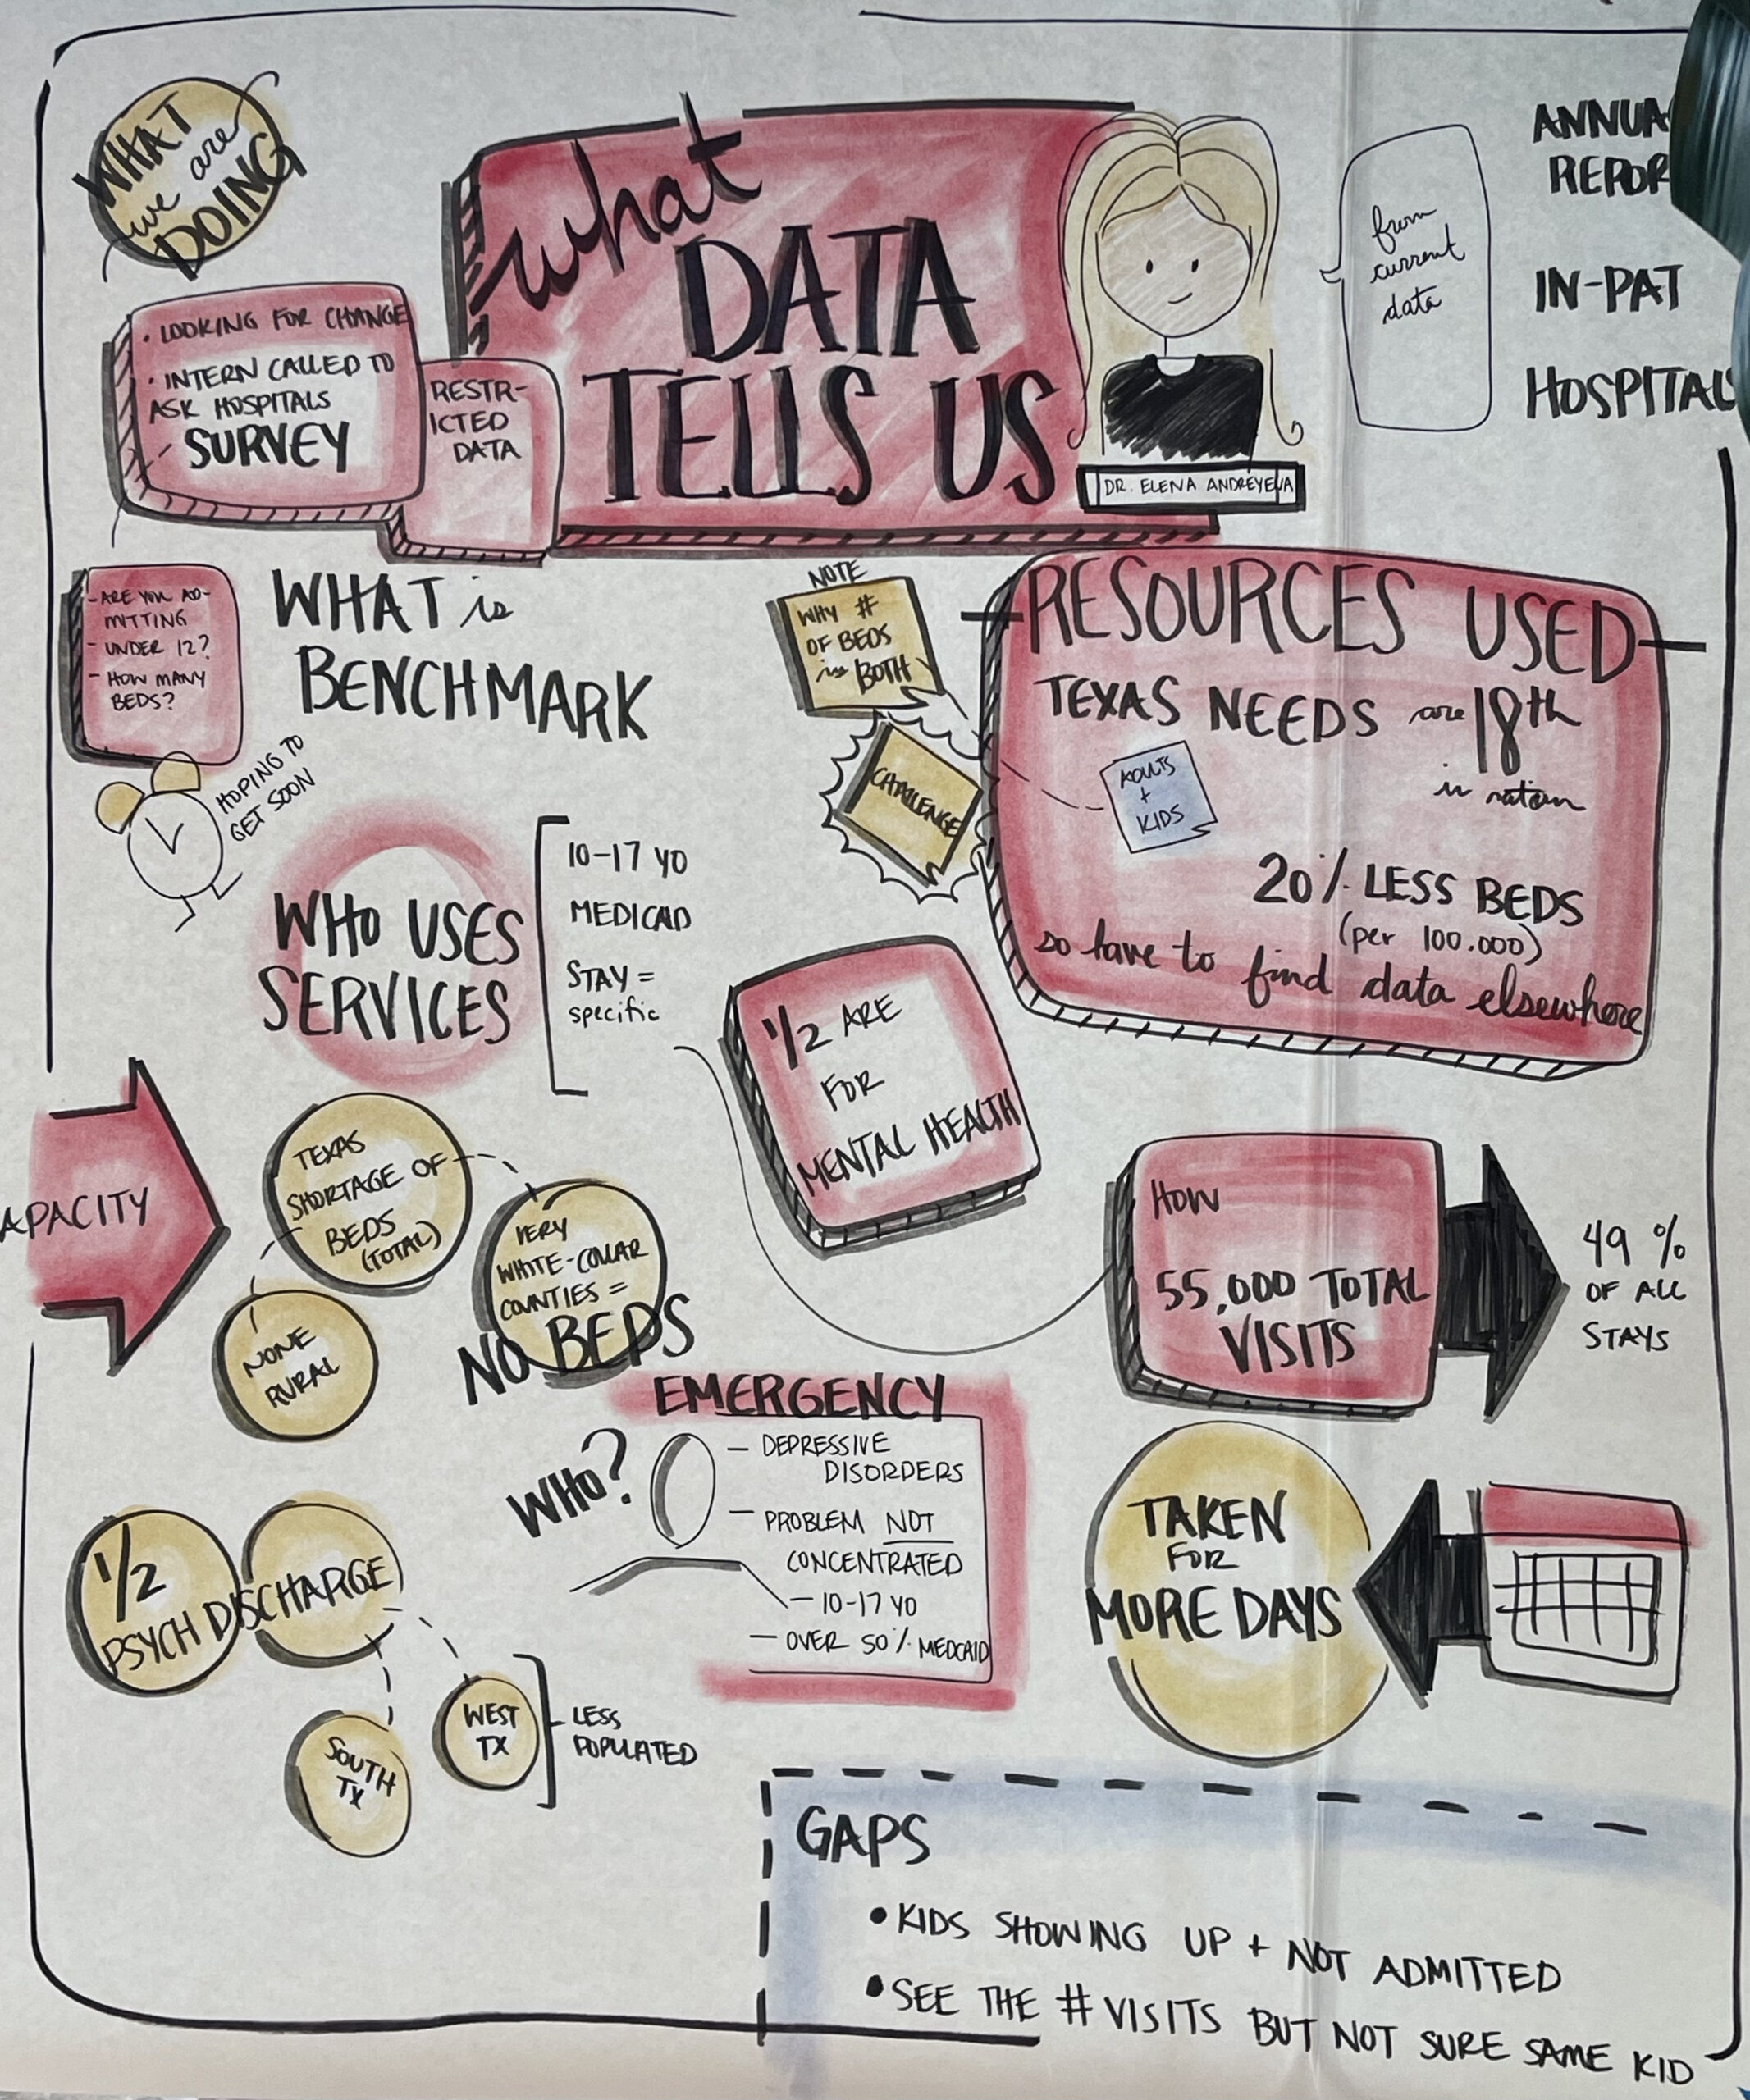 WHAT
we are
DOING
what
DATA
TELLS US
DR. ELENA ANDREYEVA
from
current
data
ANNUA
REPOR
IN-PAT
HOSPITAL
· LOOKING FOR CHANGE
· INTERN CALLED TO
ASK HOSPITALS
SURVEY
RESTR-
ICTED
DATA
- ARE YOU AD-
MITTING
- UNDER 12?
- HOW MANY
BEDS?
HOPING TO
GET SOON
WHAT is
BENCHMARK
NOTE
WHY #
OF BEDS
is BOTH
CHALLENGE
RESOURCES USED
TEXAS NEEDS are 18th
in nation
ADULTS
+
KIDS
20% LESS BEDS
(per 100.000)
so have to find data elsewhere
WHO USES
SERVICES
10-17 YO
MEDICAID
STAY =
specific
1/2 ARE
FOR
MENTAL HEALTH
HOW
55,000 TOTAL
VISITS
49 %
OF ALL
STAYS
APACITY
TEXAS
SHORTAGE OF
BEDS
(TOTAL)
VERY
WHITE-COLLAR
COUNTIES =
NO BEDS
NONE
RURAL
EMERGENCY
WHO?
- DEPRESSIVE
DISORDERS
- PROBLEM NOT
CONCENTRATED
- 10-17 YO
- OVER 50% MEDCAID
TAKEN
FOR
MORE DAYS
1/2
PSYCH DISCHARGE
WEST
TX
SOUTH
TX
LESS
POPULATED
GAPS
• KIDS SHOWING UP + NOT ADMITTED
• SEE THE # VISITS BUT NOT SURE SAME KID